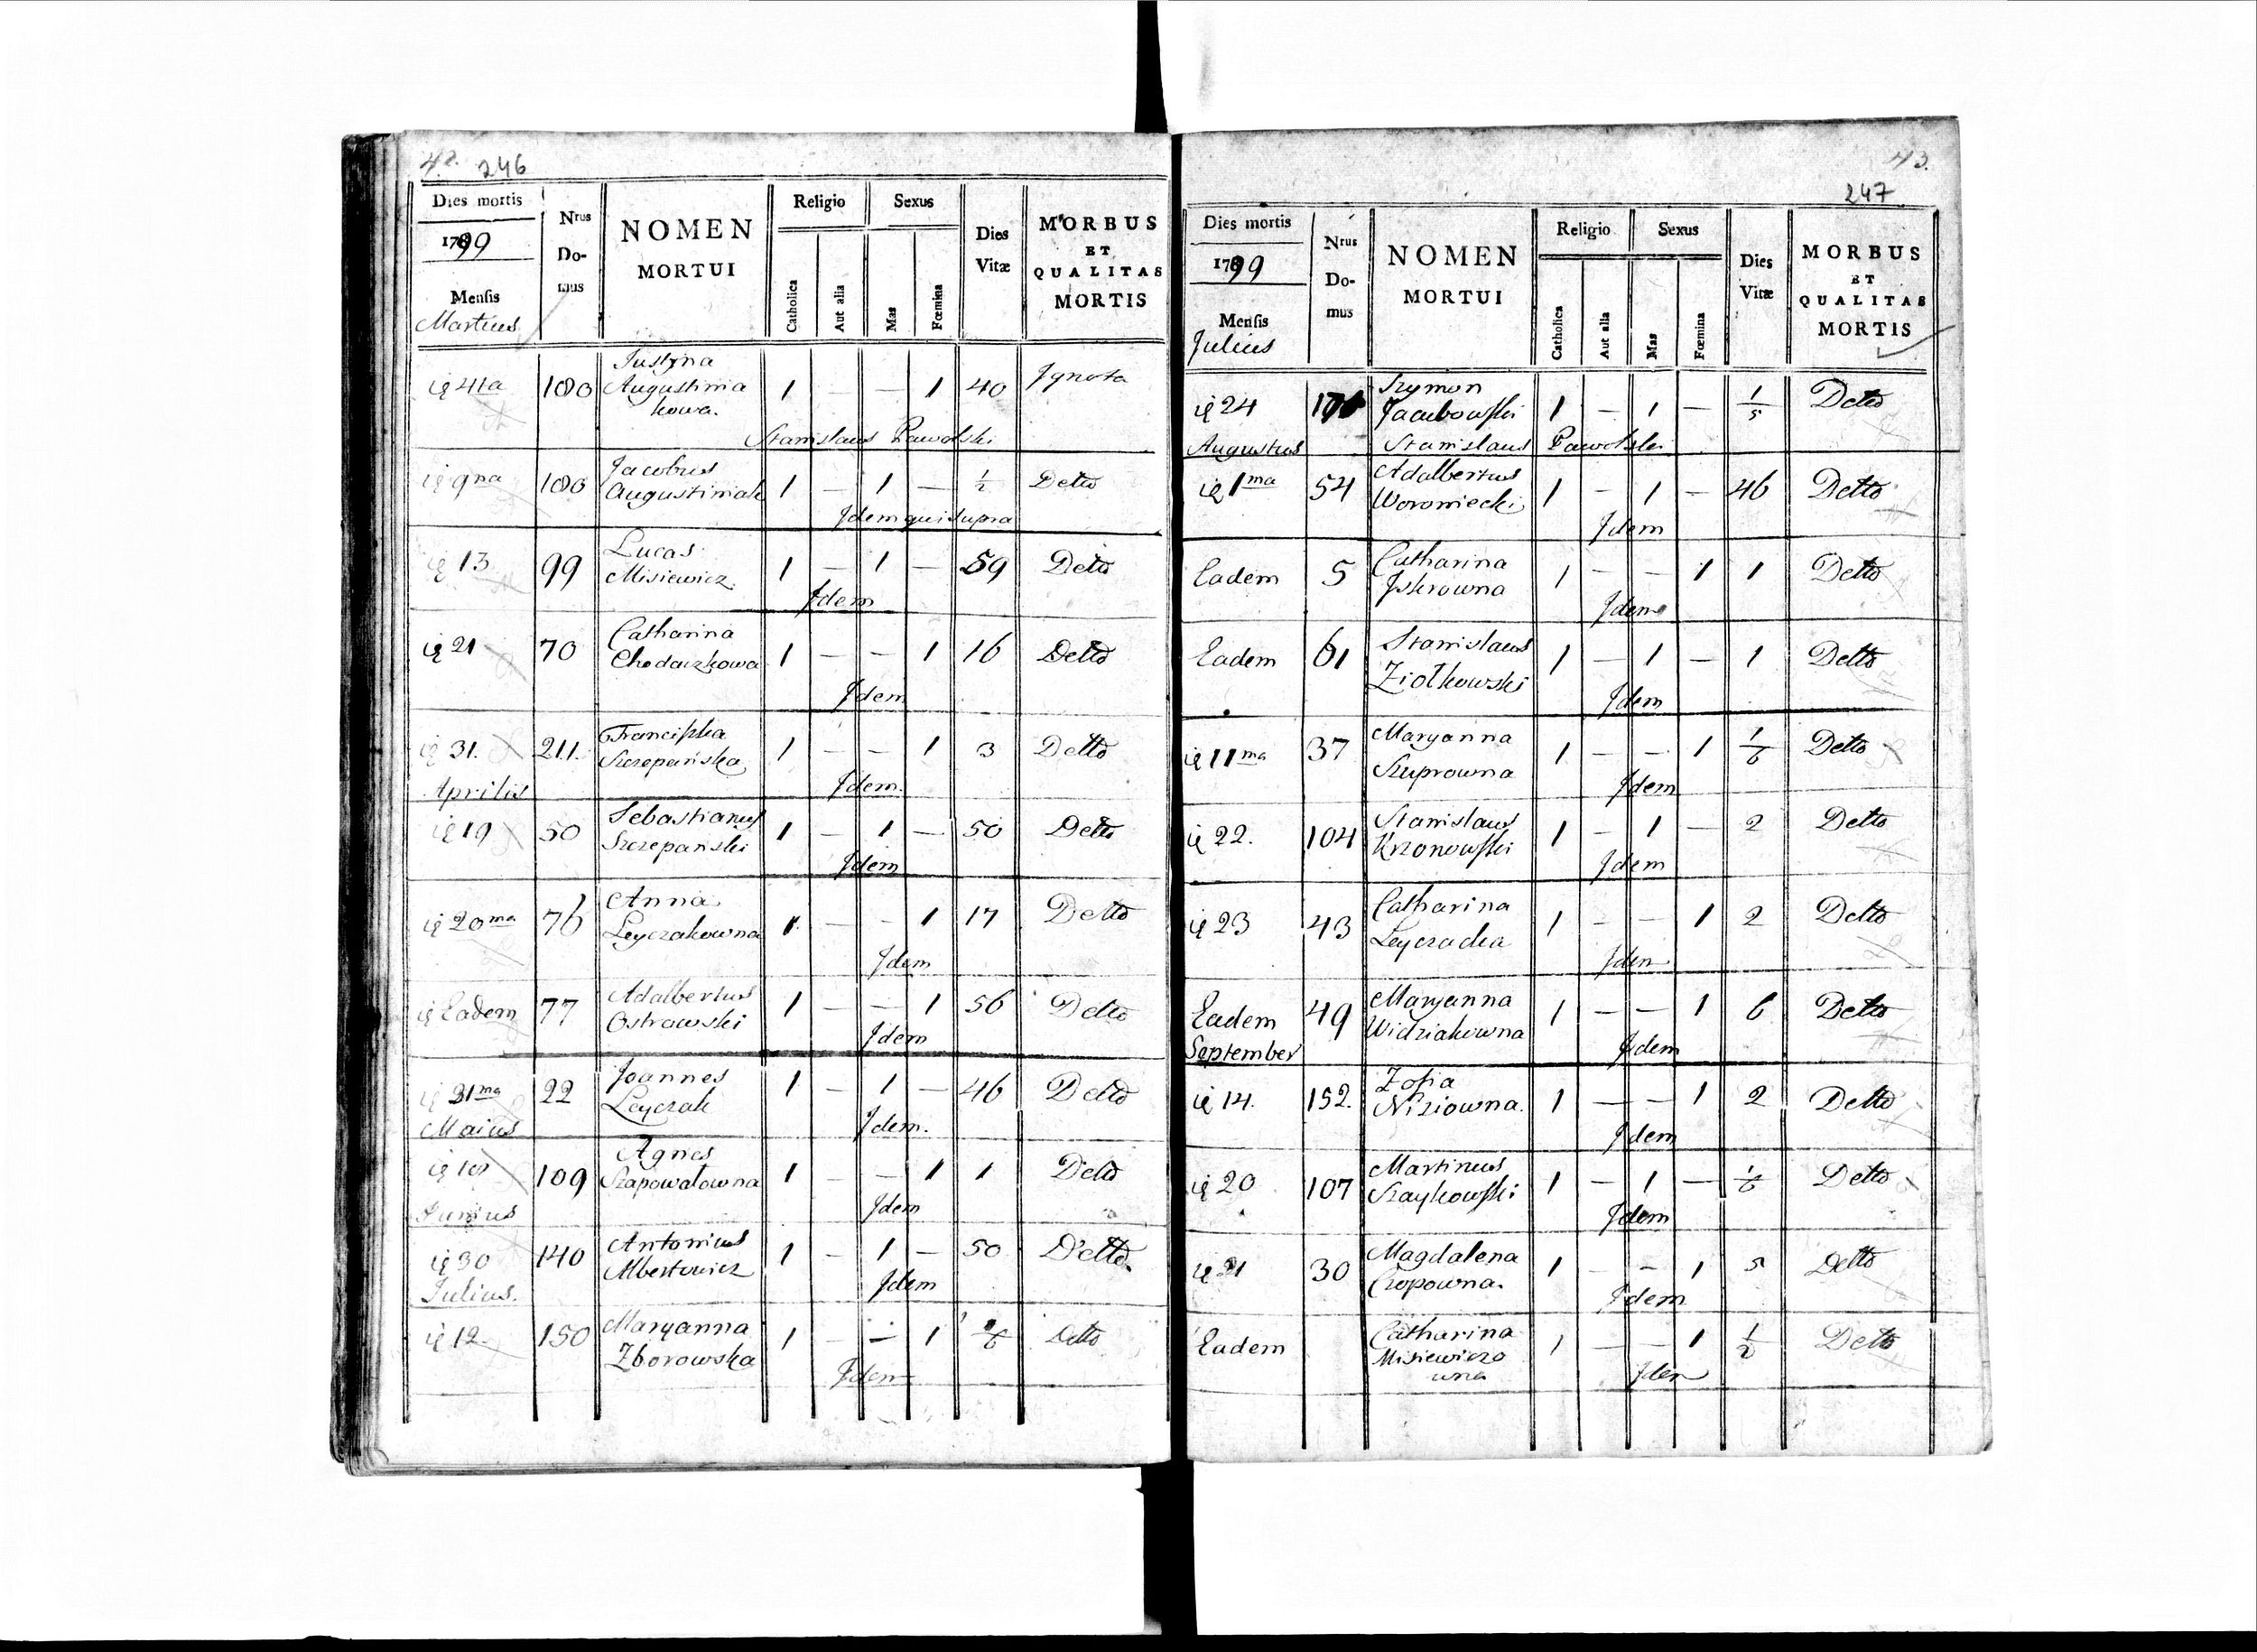 42. 246
Dies mortis
1799
Mensis
Martius
Nrus
Do-
mus
NOMEN
MORTUI
Religio
Catholica
Aut alia
Sexus
Mas
Fœmina
Dies
Vitæ
MORBUS
ET
QUALITAS
MORTIS
Justyna
41a 100 Augustinia 1 — — 1 40 Ignota
kowa.
Stanislaus Pawolski
Jacobus
9na 100 Augustiniak 1 — 1 — 1/2 Detto
Idem qui supra
Lucas
13 99 Misiewicz 1 — 1 — 59 Detto
Idem
Catharina
21 70 Chodaczkowa 1 — — 1 16 Detto
Idem
Franciska
31. 211. Szczepańska 1 — — 1 3 Detto
Aprilis Idem.
Sebastianus
19 50 Szczepański 1 — 1 — 50 Detto
Idem
Anna
20ma 76 Leyczakowna 1 — — 1 17 Detto
Idem
Adalbertus
Eadem 77 Ostrowski 1 — — 1 56 Detto
Idem
Joannes
21ma 22 Leyczak 1 — 1 — 46 Detto
Maius Idem.
Agnes
10 109 Szapowałowna 1 — — 1 1 Detto
Junius Idem
Antonius
30 140 Albertowicz 1 — 1 — 50 Detto.
Julius. Idem
Maryanna
12 150 Zborowska 1 — — 1 Detto
Idem
43.
247
Dies mortis
1799
Mensis
Julius
Nrus
Do-
mus
NOMEN
MORTUI
Religio
Catholica
Aut alia
Sexus
Mas
Fœmina
Dies
Vitæ
MORBUS
ET
QUALITAS
MORTIS
Szymon
24 Jacubowski 1 — 1 — 1/5 Detto
Augustus Stanislaus Pawolski
Adalbertus
1ma 54 Woroniecki 1 — 1 — 46 Detto
Idem
Catharina
Eadem 5 Iskrowna 1 — — 1 1 Detto
Idem
Stanislaus
Eadem 61 Ziołkowski 1 — 1 — 1 Detto
Idem
Maryanna
11ma 37 Szuprowna 1 — — 1 1/6 Detto
Idem
Stanislaus
22. 104 Krzonowski 1 — 1 — 2 Detto
Idem
Catharina
23 43 1 — — 1 2 Detto
Idem
Maryanna
Eadem 49 Widziakowna 1 — — 1 6 Detto
September Idem
Zofia
14. 152. Niziowna. 1 — — 1 2 Detto
Idem
Martinus
20 107 Szaykowski 1 — 1 — 1/6 Detto
Idem
Magdalena
21 30 Czopowna. 1 — — 1 5 Detto
Idem
Catharina
Eadem Misiewiczo 1 — — 1 1/2 Detto
wna
Idem